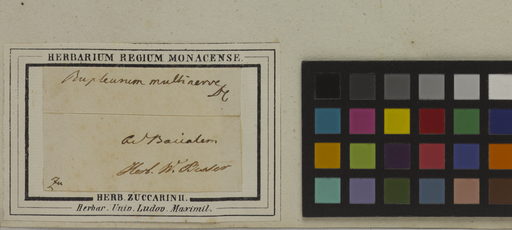 HERBARIUM REGIUM MONACENSE.
Bupleurum multinerve
DC
ad Baicalem
Herb. W.
HERB. ZUCCARINII.
Herbar. Univ. Ludov. Maximil.